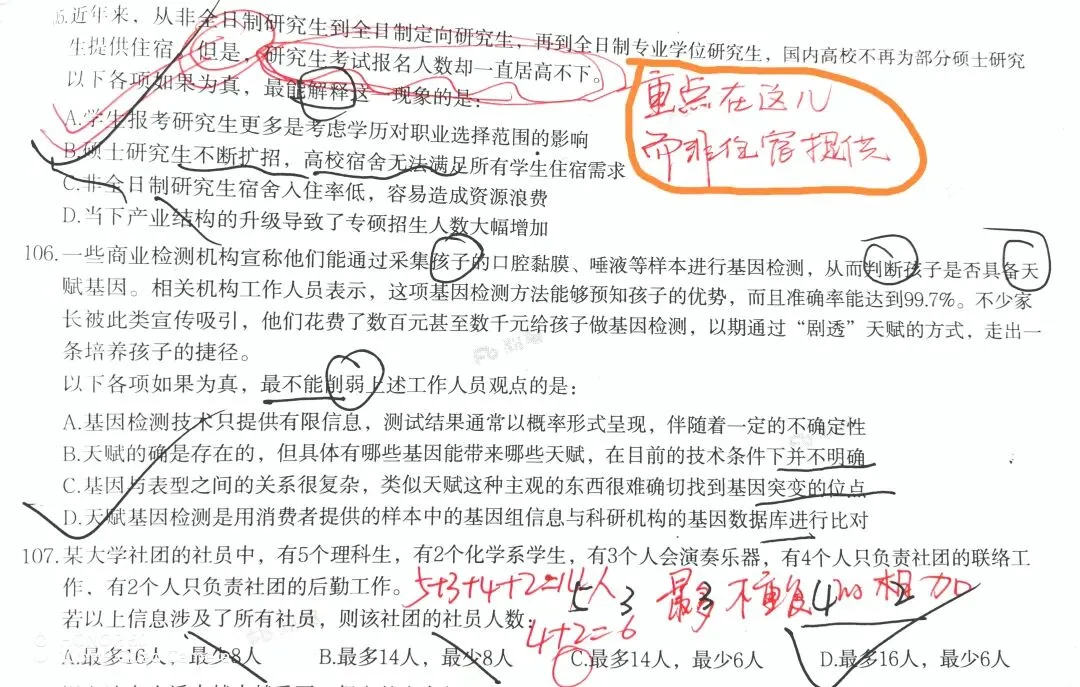 05.近年来，从非全日制研究生到全日制定向研究生，再到全日制专业学位研究生，国内高校不再为部分硕士研究
生提供住宿。但是，研究生考试报名人数却一直居高不下。
以下各项如果为真，最能解释这一现象的是：
重点在这儿
A.学生报考研究生更多是考虑学历对职业选择范围的影响
而非住宿提供
B.硕士研究生不断扩招，高校宿舍无法满足所有学生住宿需求
C.非全日制研究生宿舍入住率低，容易造成资源浪费
D.当下产业结构的升级导致了专硕招生人数大幅增加
106.一些商业检测机构宣称他们能通过采集孩子的口腔黏膜、唾液等样本进行基因检测，从而判断孩子是否具备天
赋基因。相关机构工作人员表示，这项基因检测方法能够预知孩子的优势，而且准确率能达到99.7%。不少家
长被此类宣传吸引，他们花费了数百元甚至数千元给孩子做基因检测，以期通过“剧透”天赋的方式，走出一
条培养孩子的捷径。
以下各项如果为真，最不能削弱上述工作人员观点的是：
A.基因检测技术只提供有限信息，测试结果通常以概率形式呈现，伴随着一定的不确定性
B.天赋的确是存在的，但具体有哪些基因能带来哪些天赋，在目前的技术条件下并不明确
C.基因与表型之间的关系很复杂，类似天赋这种主观的东西很难确切找到基因突变的位点
D.天赋基因检测是用消费者提供的样本中的基因组信息与科研机构的基因数据库进行比对
107.某大学社团的社员中，有5个理科生，有2个化学系学生，有3个人会演奏乐器，有4个人只负责社团的联络工
作，有2个人只负责社团的后勤工作。
5+3+4+2=14人 5 3 最多 3 不重复 4 的相加 2
若以上信息涉及了所有社员，则该社团的社员人数：
4+2=6
A.最多16人，最少8人 B.最多14人，最少8人 C.最多14人，最少6人 D.最多16人，最少6人